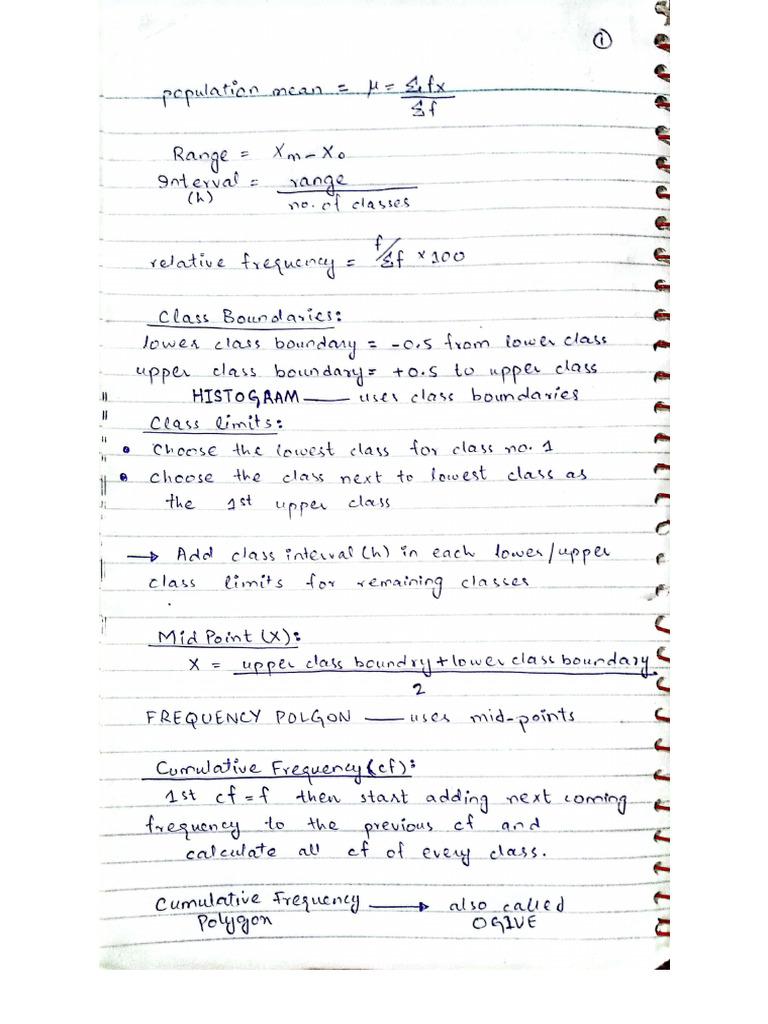 ①
population mean = μ = Σfx
Σf
Range = Xm - X0
Interval = range
(h) no. of classes
relative frequency = f/Σf × 100
Class Boundaries:
lower class boundary = -0.5 from lower class
upper class boundary = +0.5 to upper class
HISTOGRAM — uses class boundaries
Class limits:
• Choose the lowest class for class no. 1
• Choose the class next to lowest class as
the 1st upper class
→ Add class interval (h) in each lower/upper
class limits for remaining classes
Mid Point (X):
X = upper class boundry + lower class boundary
2
FREQUENCY POLGON — uses mid-points
Cumulative Frequency (cf):
1st cf = f then start adding next coming
frequency to the previous cf and
calculate all cf of every class.
Cumulative Frequency → also called
Polygon OGIVE